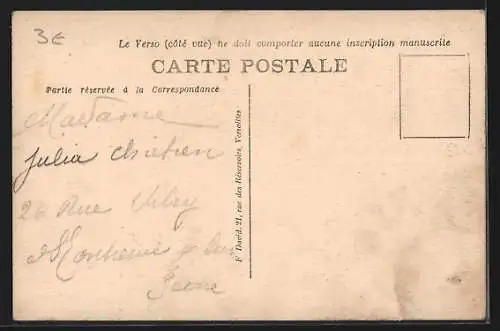 3€
Le Verso (côté vue) ne doit comporter aucune inscription manuscrite
CARTE POSTALE
Partie réservée à la Correspondance
Madame
Julia Chretien
26 Rue Vitry
Seine
F. David. 21, rue des Réservoirs, Versailles